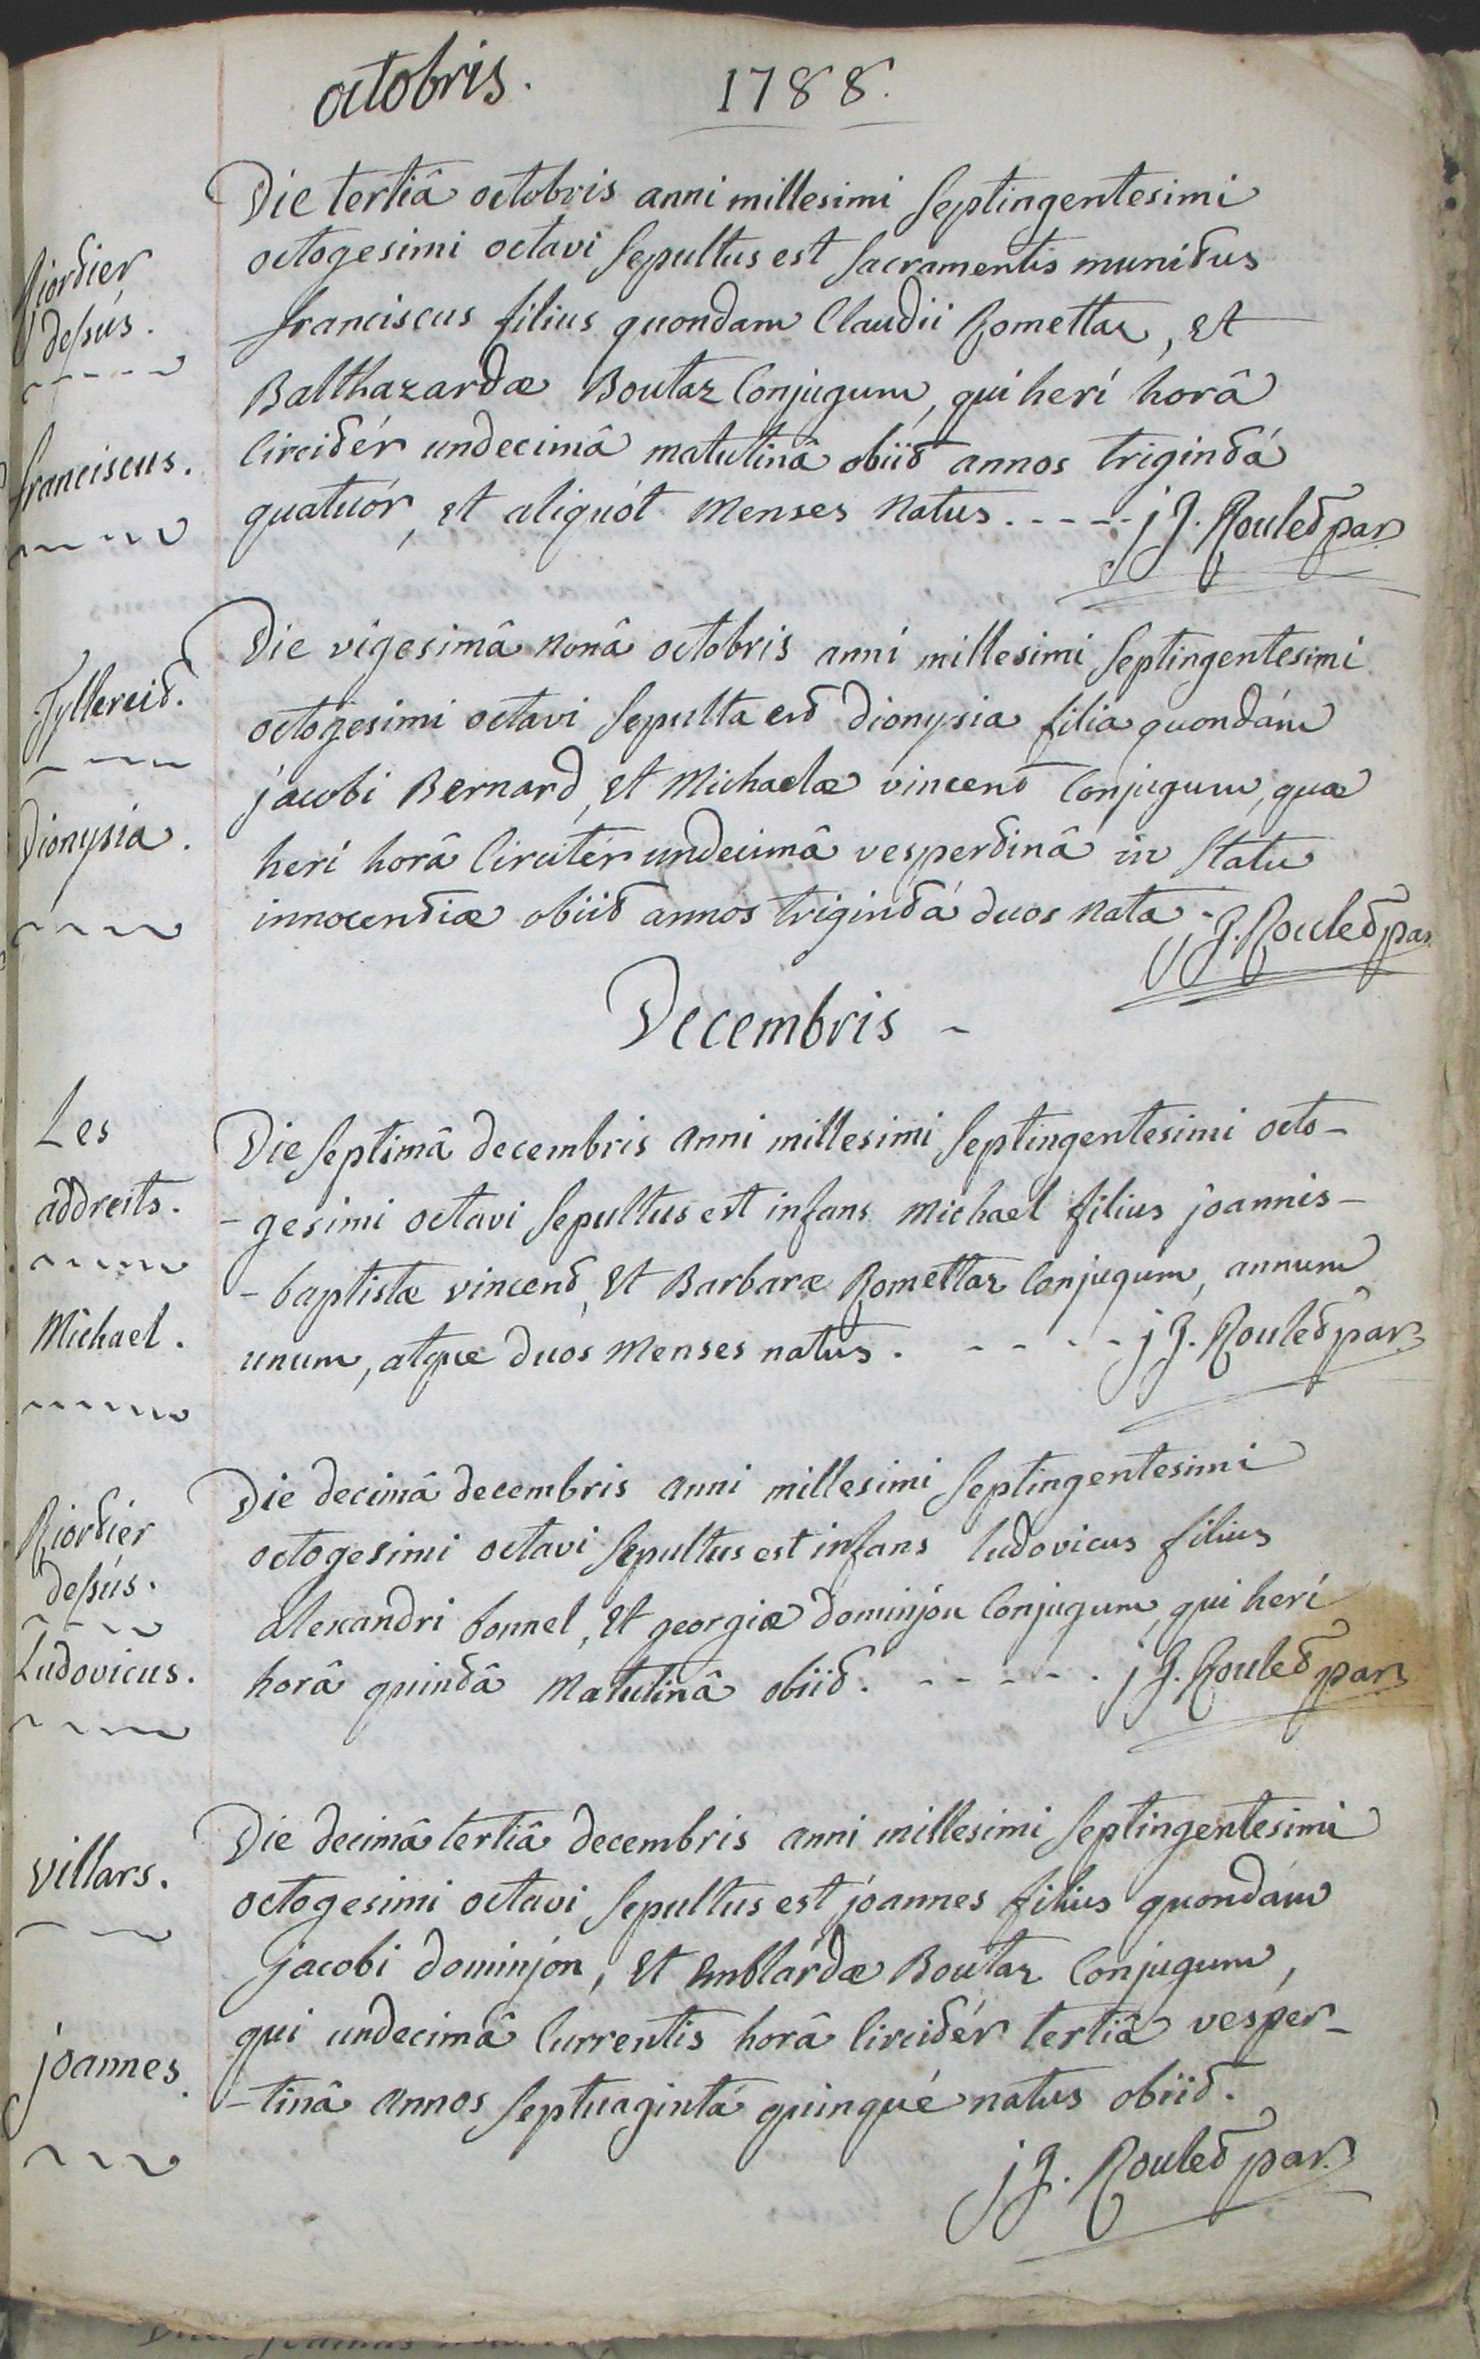 octobris. 1788.
Die tertiâ octobris anni millesimi septingentesimi
octogesimi octavi sepultus est sacramentis munitus
franciscus filius quondam Claudii Romettaz, et
Balthazardæ Boutaz Conjugum, qui herí horâ
Circitér undecimâ matutinâ obiit annos trigintá
quatuór, et aliquót menses natus. - - - - j J. Roulet par.
Riortier
dessús.
franciscus.
Die vigesimâ nonâ octobris anni millesimi septingentesimi
octogesimi octavi sepulta est dionysia filia quondám
jacobi Bernard, et Michaelæ vincent Conjugum, quæ
herí horâ Circitér undecimâ vespertinâ in statu
innocentiæ obiit annos trigintá duos nata - j J. Roulet par.
Tyllereit.
Dionysia.
Decembris -
Die septimâ decembris anni millesimi septingentesimi octo-
-gesimi octavi sepultus est infans Michael filius joannis-
-baptistæ vincent, et Barbaræ Romettaz Conjugum, annum
unum, atque duós menses natus. - - - - j J. Roulet par.
Les
addreits.
Michael.
Die decimâ decembris anni millesimi septingentesimi
octogesimi octavi sepultus est infans ludovicus filius
alexandri bonnel, et georgiæ dominjón Conjugum, qui herí
horâ quintâ matutinâ obiit. - - - - - j J. Roulet par.
Riortiér
dessús.
Ludovicus.
Die decimâ tertiâ decembris anni millesimi septingentesimi
octogesimi octavi sepultus est joannes filius quondám
jacobi dominjón, et Emblárdæ Boutaz Conjugum,
qui undecimâ Currentis horâ Circitér tertiâ vespér-
-tinâ annos septuagintá quinqué natus obiit.
j J. Roulet par.
villars.
joannes.